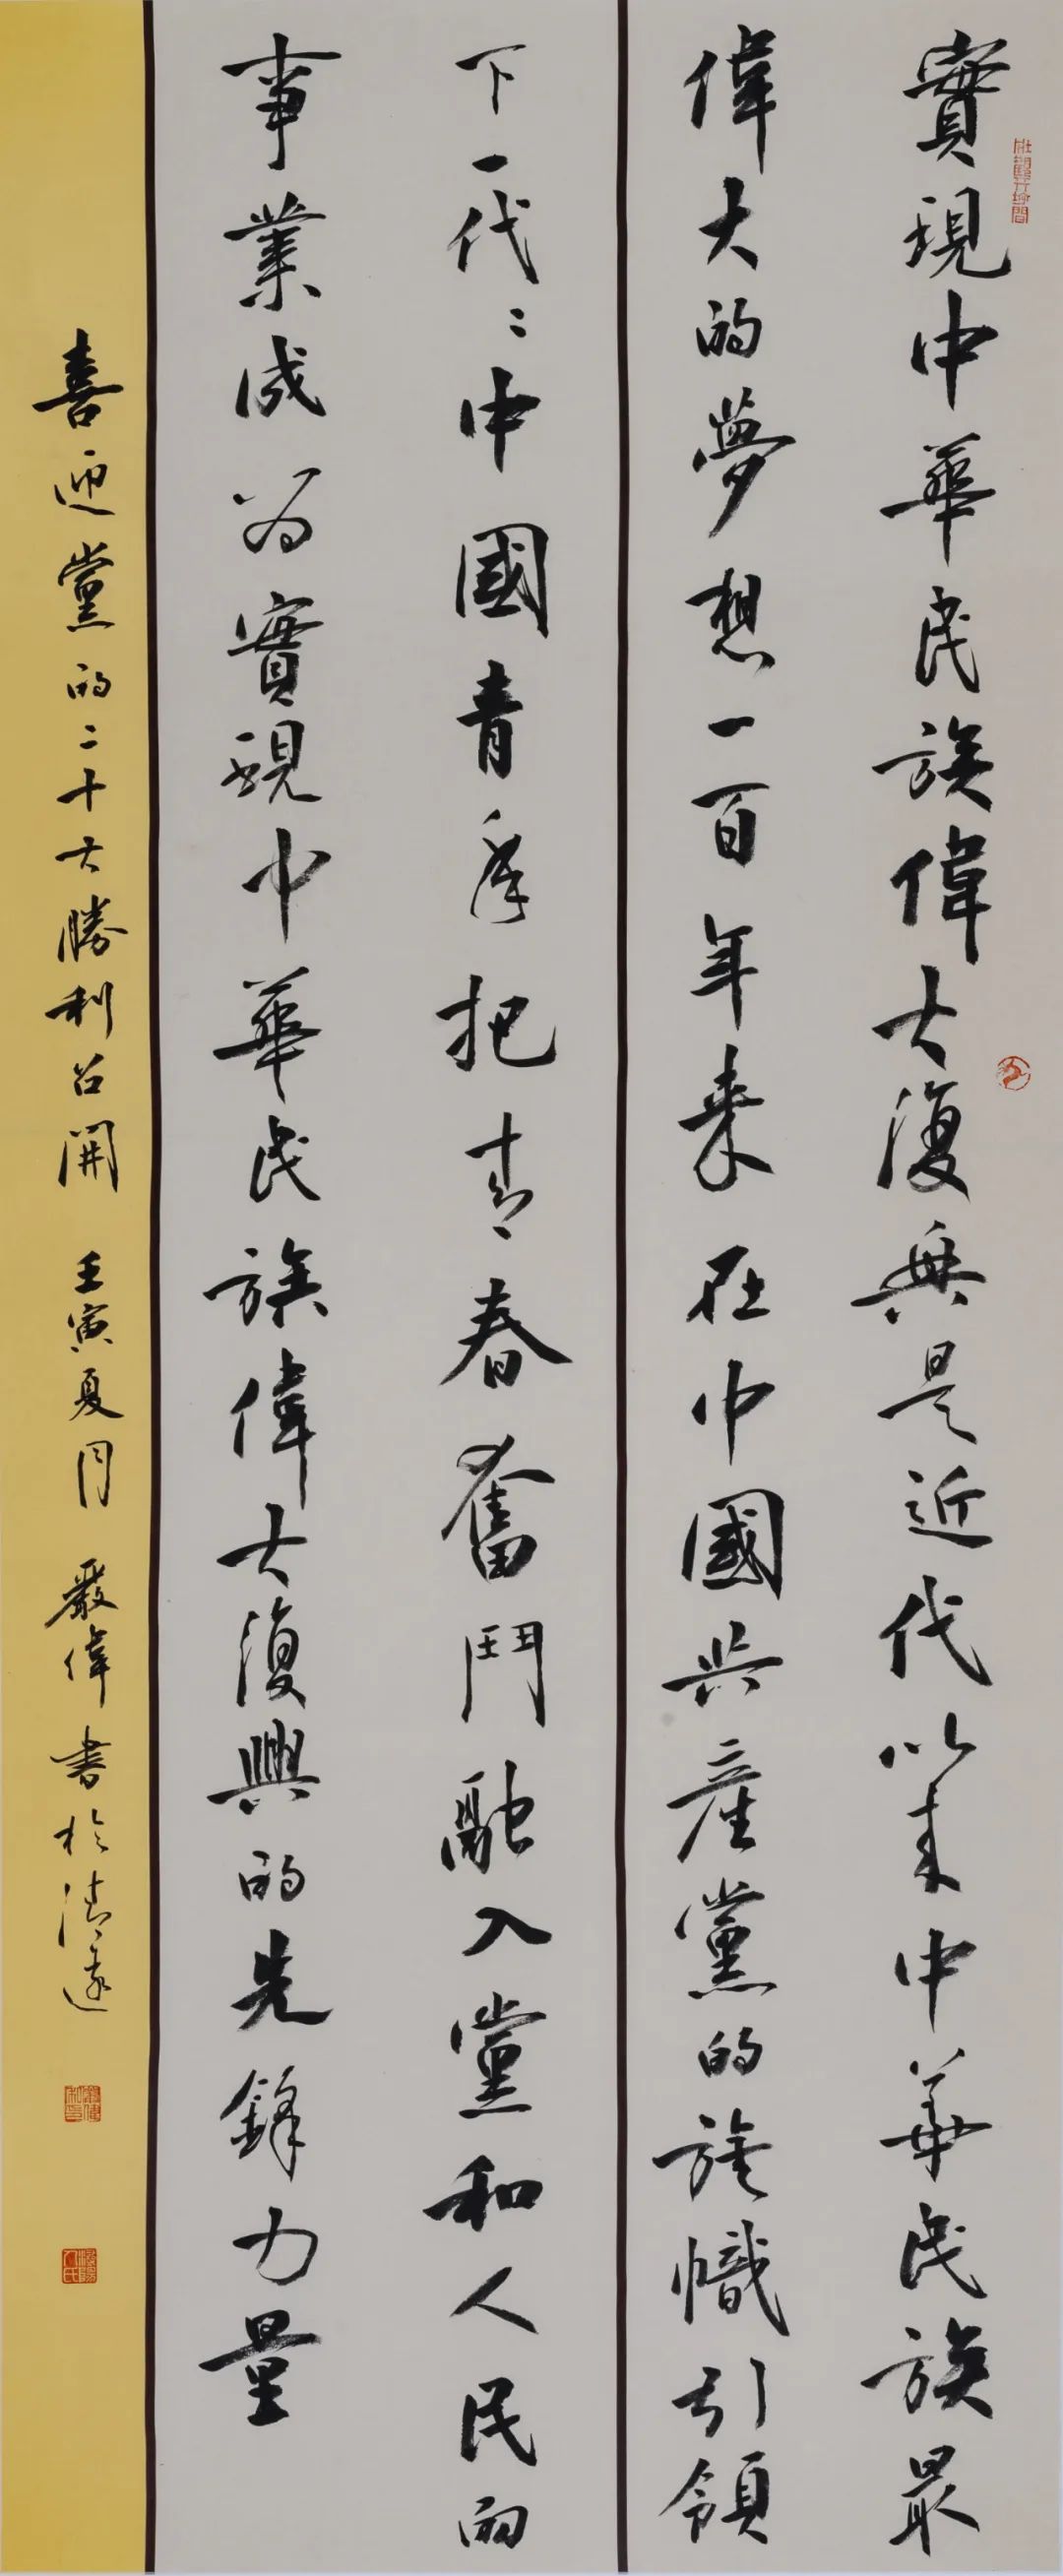 實現中華民族偉大復興是近代以來中華民族最
偉大的夢想一百年來在中國共產黨的旗幟引領
下一代〻中國青年把青春奮鬥融入黨和人民的
事業成為實現中華民族偉大復興的先鋒力量
喜迎黨的二十大勝利召開 壬寅夏月 嚴偉書於清遠